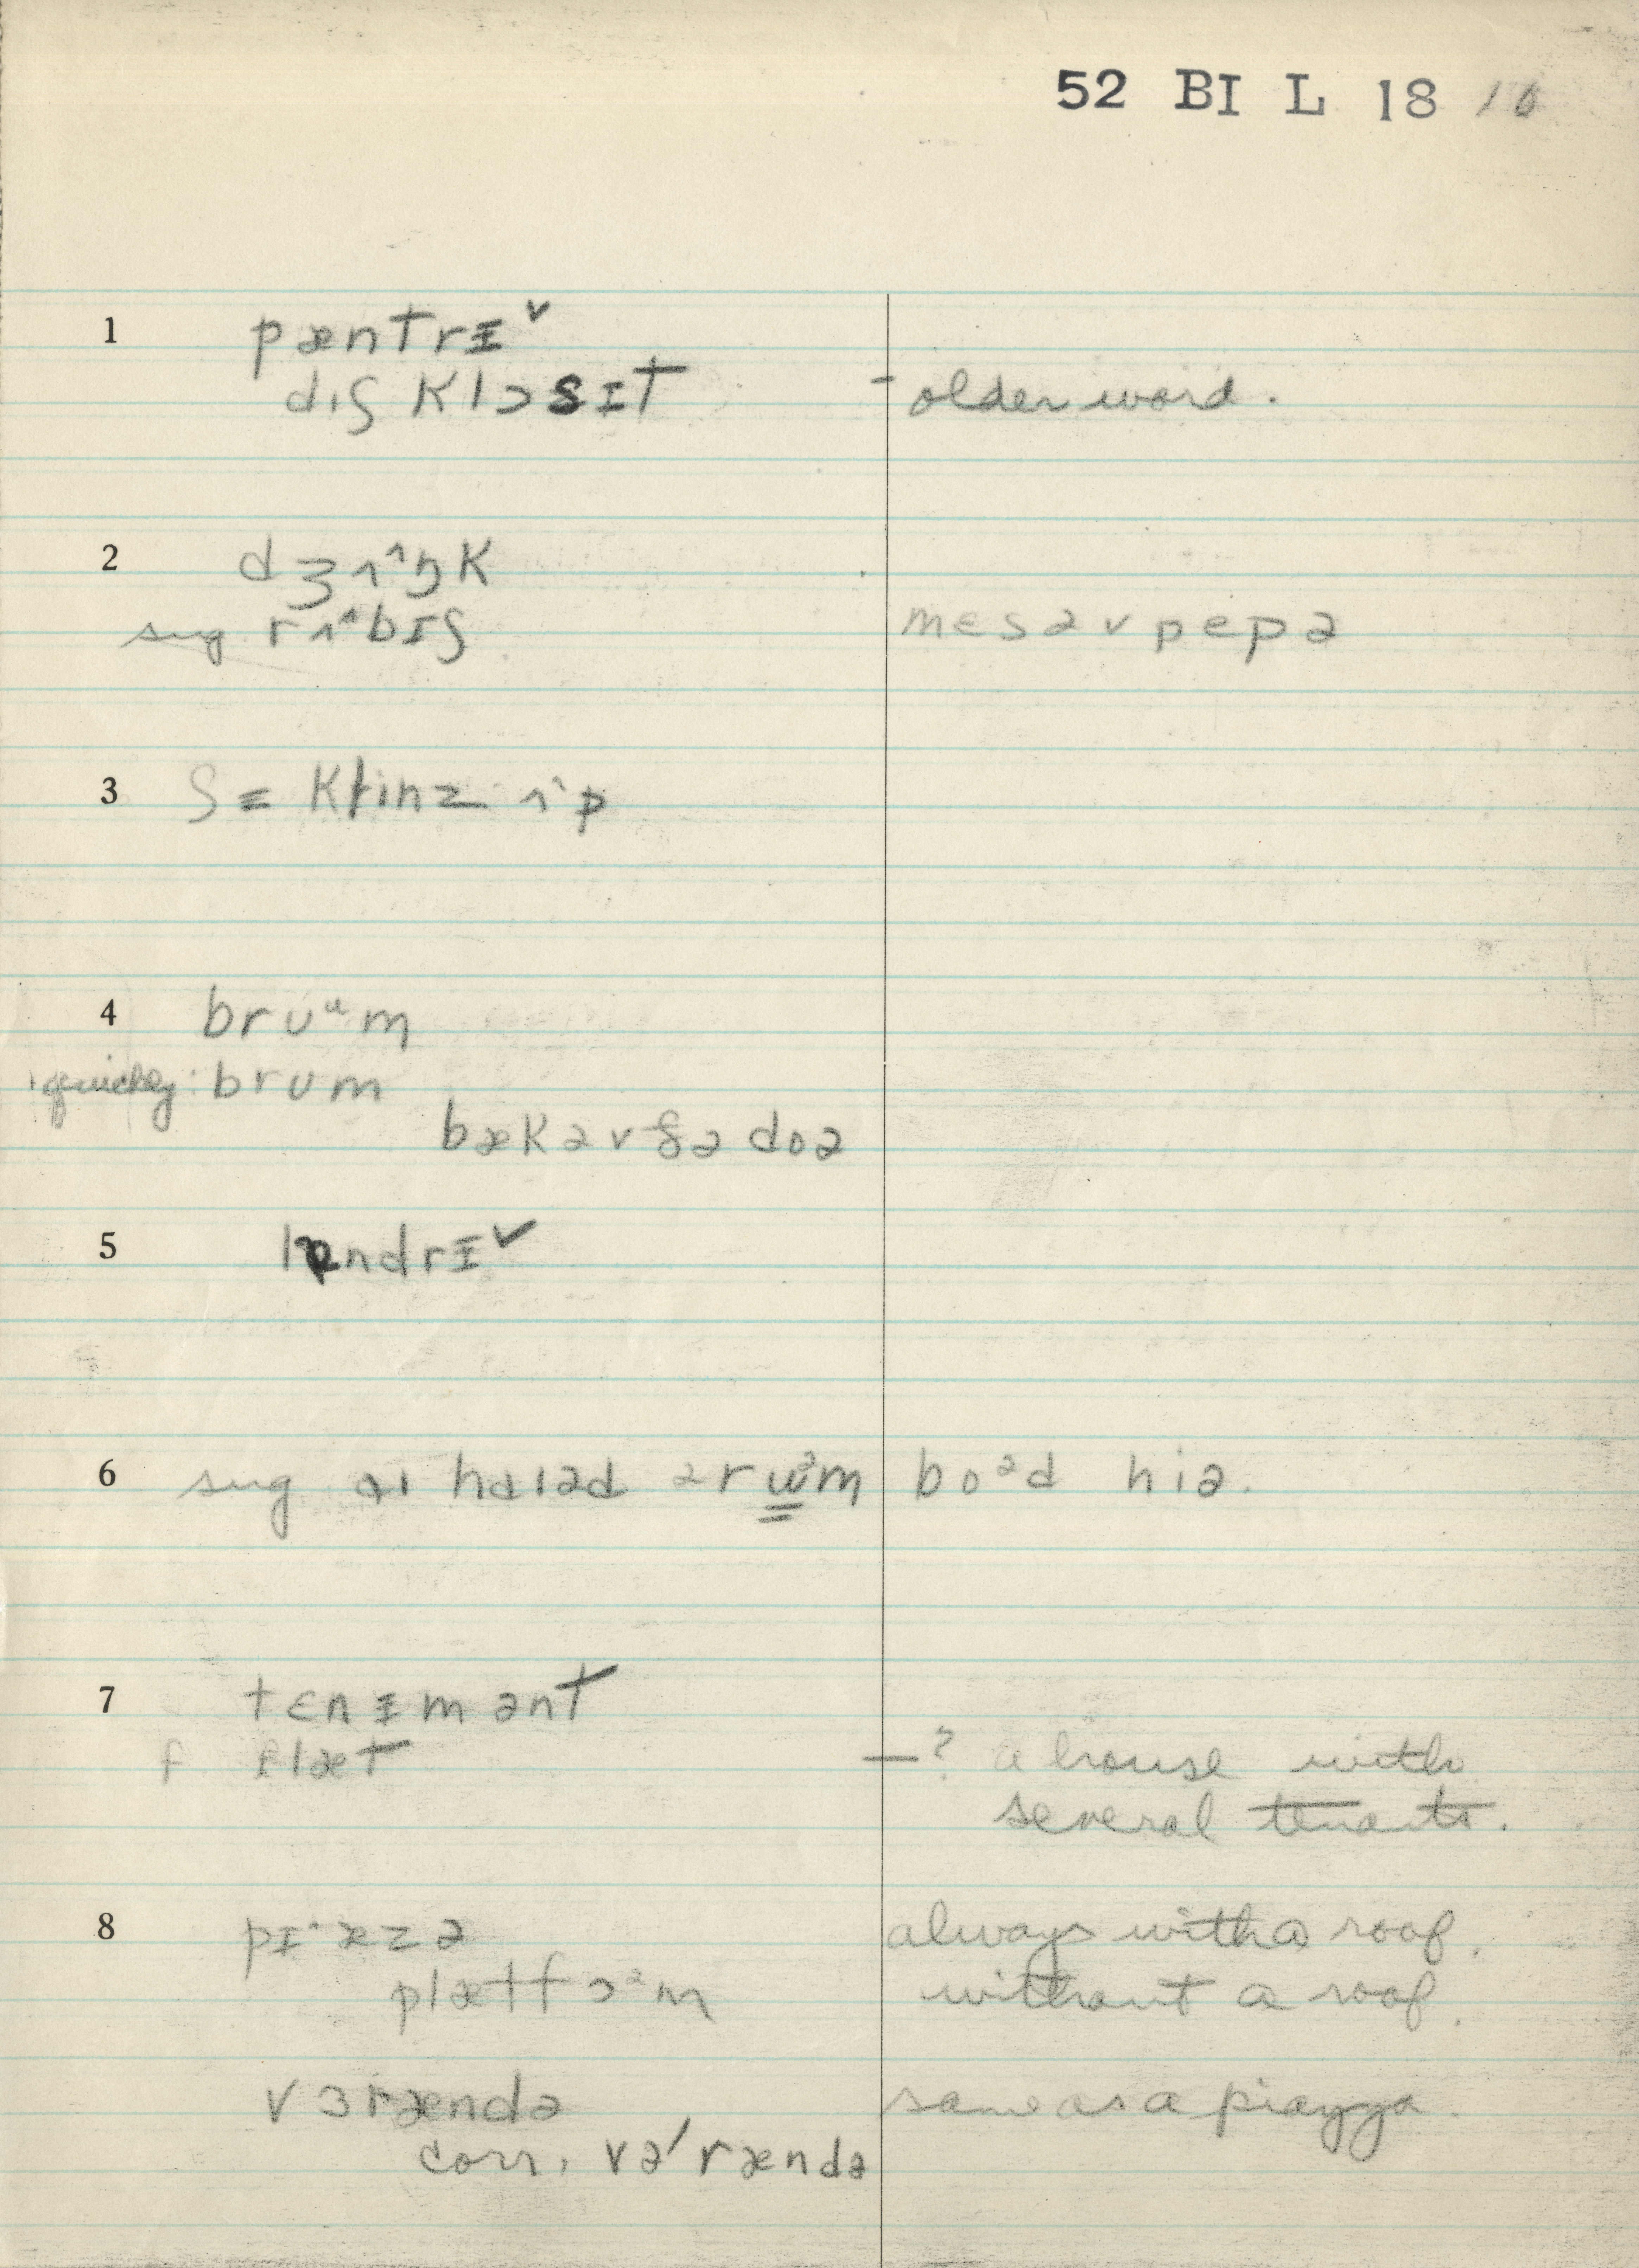 52 BI L 18 10
1 pæntrɪ˅
dɪʃ klɔsɪt - older word.
2 dʒʌ^ŋk
sug rʌ^bɪʃ mɛsəvpepə
3 ʃɪ klinz ʌ^p
4 brʊᵘm
quickly: brʊm
bækəvðədoə
5 lɒndrɪ˅
6 sug aɪ hɑɪəd ərum boᵊd hiə.
7 tɛnɪmənt
f flæt —? a house with
several tenants.
8 pɪˈæzə always with a roof.
plætfɔᵊm without a roof.
vɜrændə same as a piazza.
corr. vəˈrændə